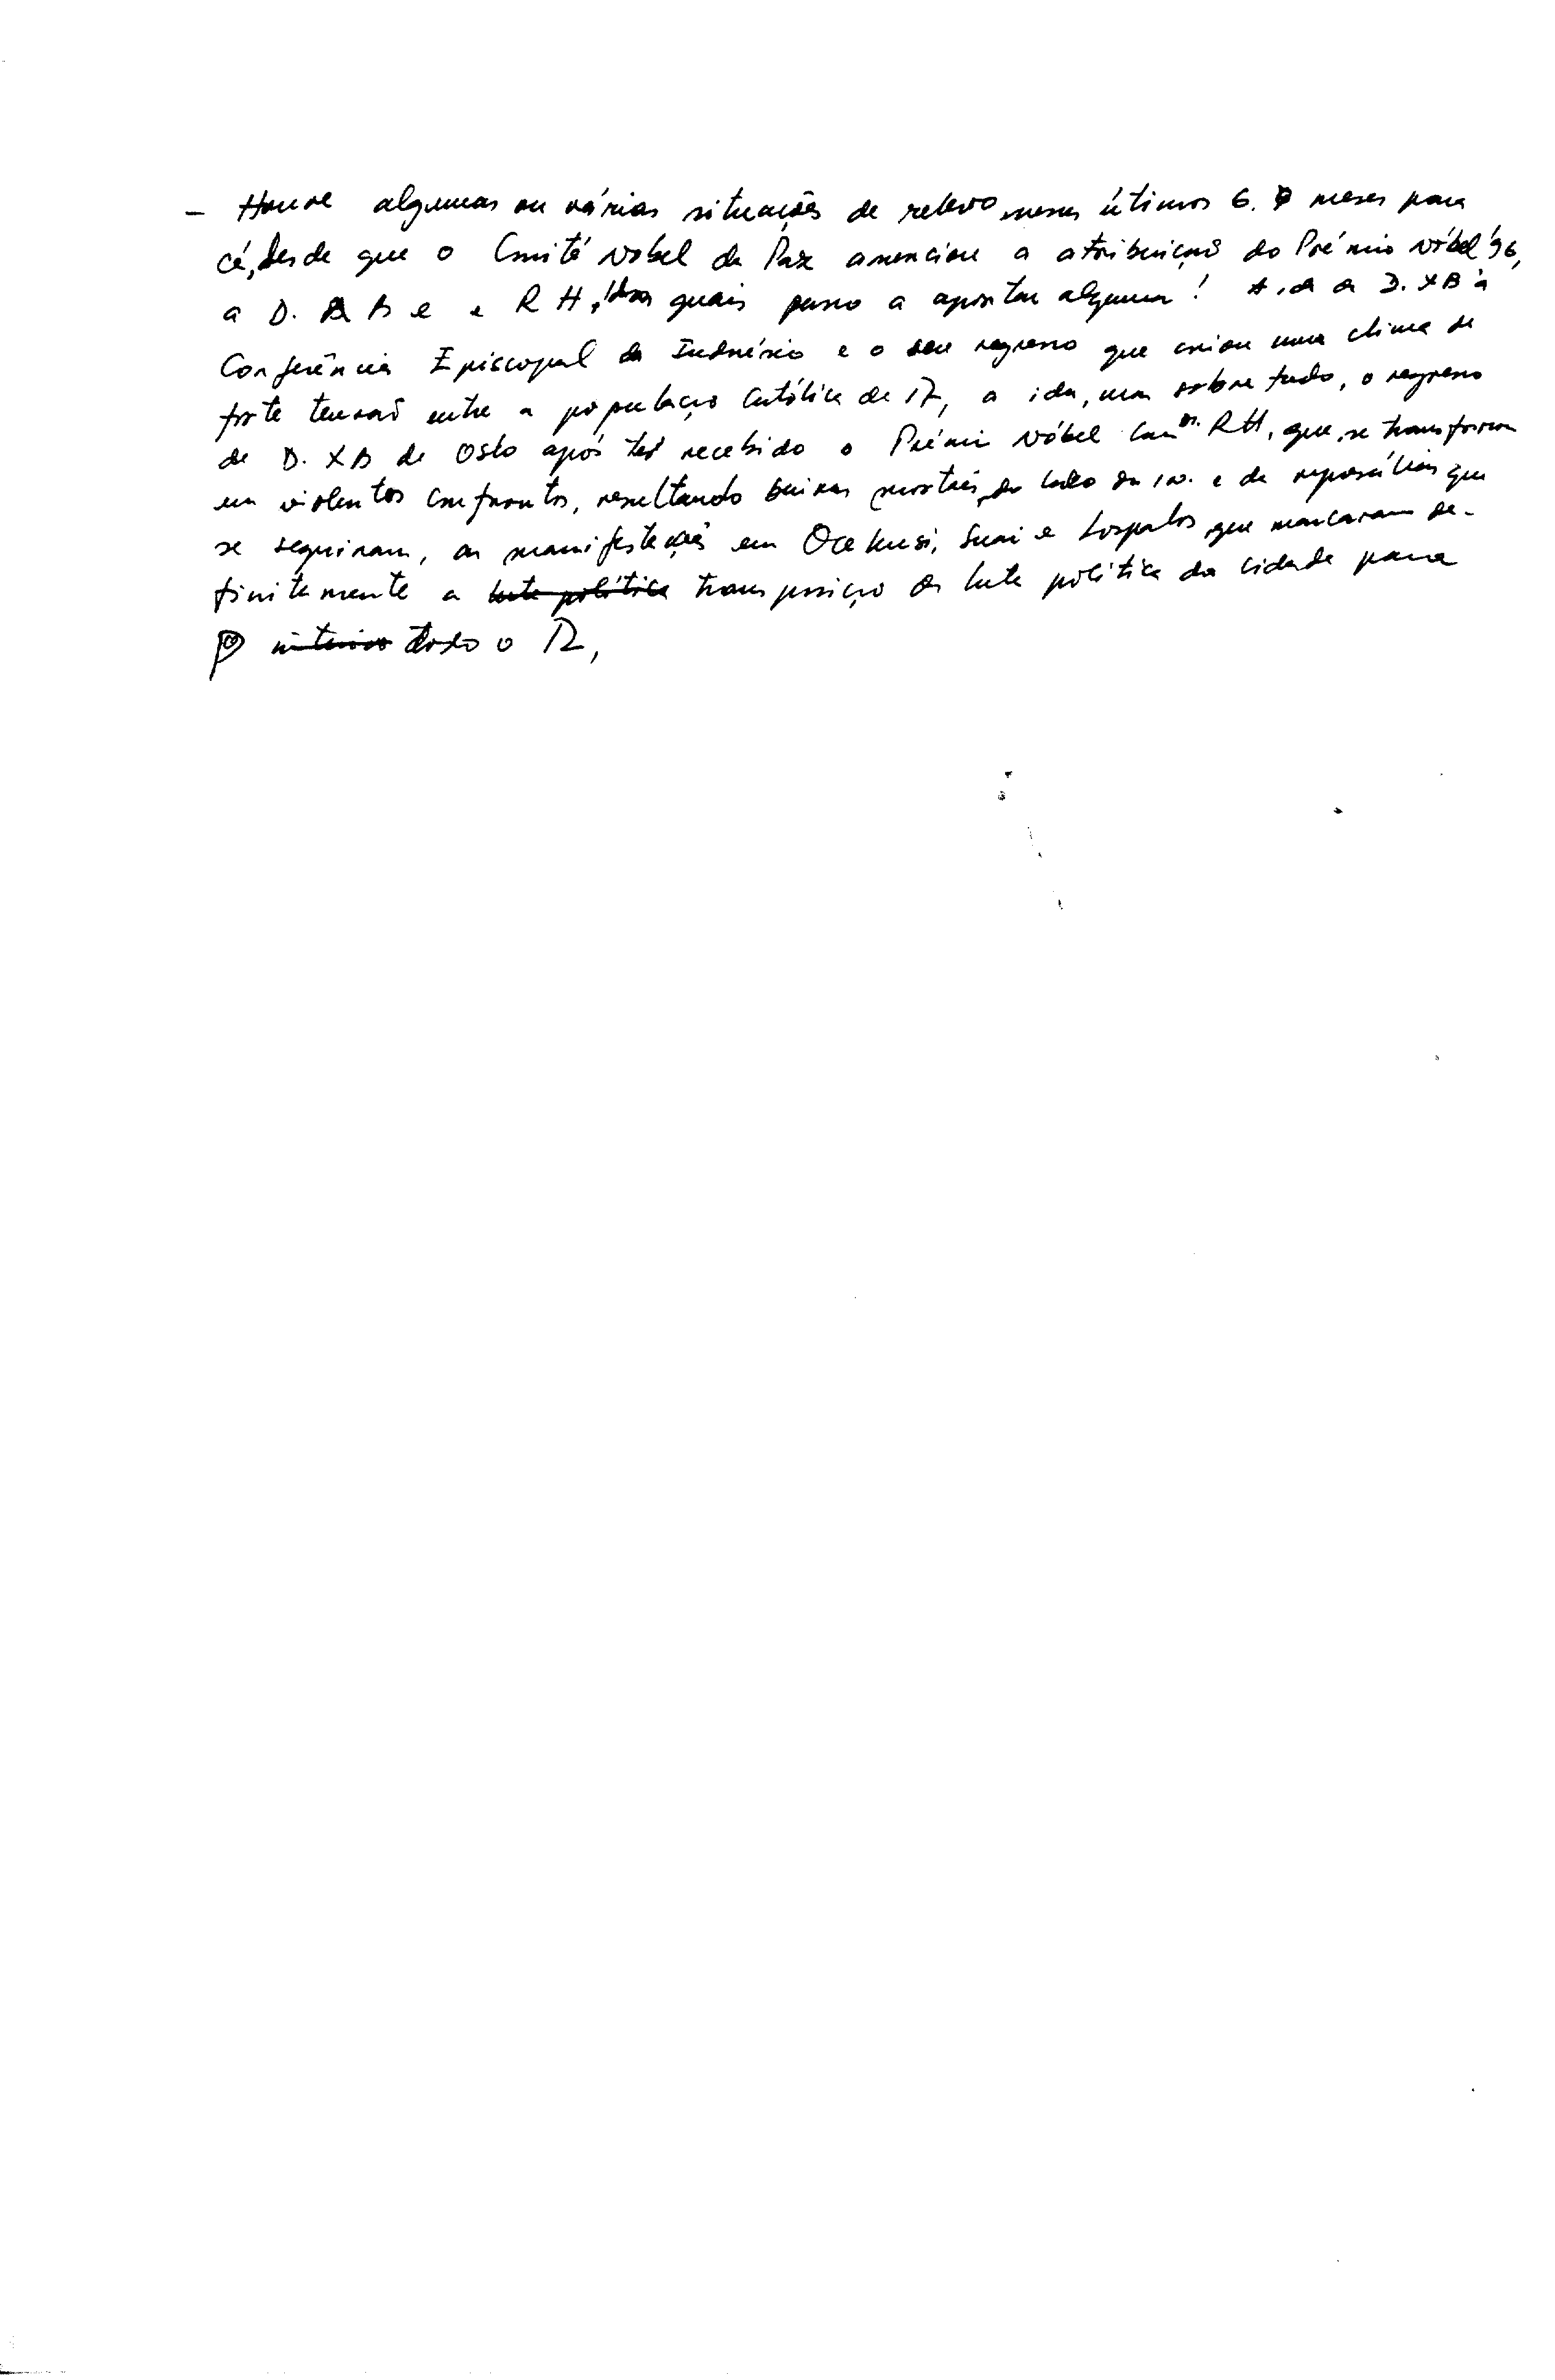 - Houve algumas ou várias situações de relevo, nesses útimos 6. 7 meses para
cá, desde que o Comité Nobel da Paz anunciou a atribuição do Prémio Nóbel '96,
a D. X B e a R H, das quais passo a apontar algumas! A ida a D. XB à
Conferência Episcopal da Indonésia e o seu regresso que criou uma clima de
forte tensão entre a população Católica de TL, a ida, mas sobre tudo, o regresso
de D. XB de Oslo após ter recebido o Prémio Nóbel com Dr. RH, que se transformou
em violentos confrontos, resultando baixas mortais do lado do in. e da represálias que
se seguiram, as manifestações em Oekusi, Suai e Lospalos que marcaram de-
finitamente a luta política transposição da luta política da cidade para
interior todo o TL,